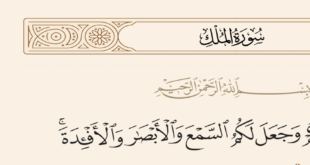 سُورَةُ المُلْكِ
بِسْمِ اللَّهِ الرَّحْمَٰنِ الرَّحِيمِ
وَجَعَلَ لَكُمُ السَّمْعَ وَالْأَبْصَارَ وَالْأَفْئِدَةَ ۖ